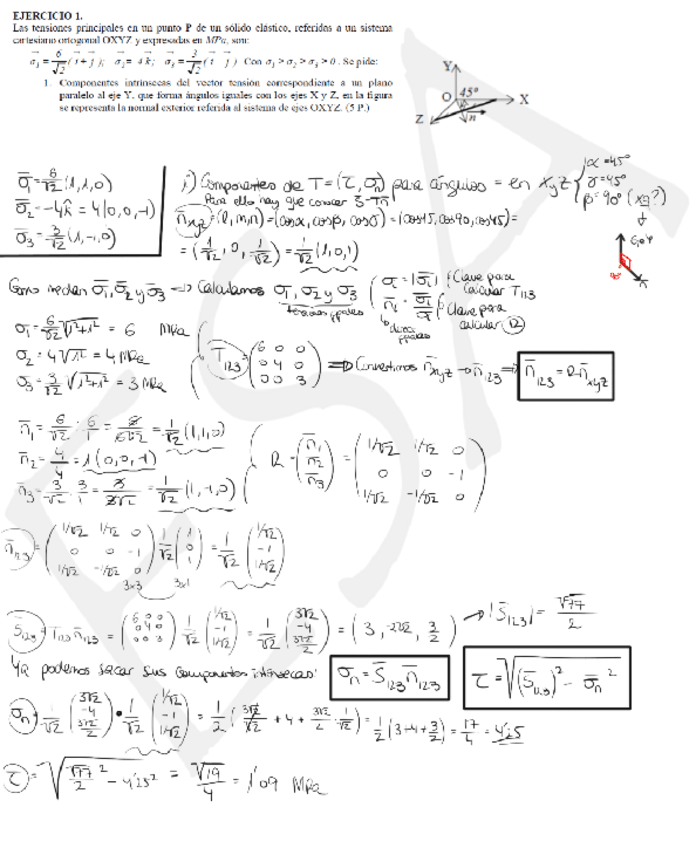 EJERCICIO 1.
Las tensiones principales en un punto P de un sólido elástico, referidas a un sistema
cartesiano ortogonal OXYZ y expresadas en MPa, son:
σ₁ = 6/√2 (i + j); σ₂ = 4k; σ₃ = 3/√2 (i j) Con σ₁ > σ₂ > σ₃ > 0. Se pide:
1. Componentes intrínsecas del vector tensión correspondiente a un plano
paralelo al eje Y, que forma ángulos iguales con los ejes X y Z, en la figura
se representa la normal exterior referida al sistema de ejes OXYZ. (5 P.)
Y
O 45º X
Z n
σ̄₁ = 6/√2 (1,1,0)
σ̄₂ = -4k̂ = 4(0,0,-1)
σ̄₃ = 3/√2 (1,-1,0)
1) Componentes de T = (τ, σn) para ángulos = en xyz { α = 45º
γ = 45º
β = 90º (xq?)
Para ello hay que conocer
n̄xyz = (l, m, n) = (cosα, cosβ, cosγ) = (cos45, cos90, cos45) =
= (1/√2, 0, 1/√2) = 1/√2 (1,0,1)
Como me dan σ̄₁, σ̄₂ y σ̄₃ ⇒ Calculamos σ₁, σ₂ y σ₃
tensiones ppales
σᵢ = |σ̄ᵢ| } Clave para calcular T₁₂₃
n̄ᵢ = σ̄ᵢ/σᵢ } Clave para calcular R
σ₁ = 6/√2 √(1²+1²) = 6 MPa
σ₂ = 4√1² = 4 MPa
σ₃ = 3/√2 √(1²+1²) = 3 MPa
T₁₂₃ = (6 0 0
0 4 0
0 0 3) ⇒ Convertimos n̄xyz → n̄₁₂₃ ⇒ n̄₁₂₃ = R·n̄xyz
n̄₁ = 6/√2 : 6/1 = 6/6√2 = 1/√2 (1,1,0)
n̄₂ = 4/4 = 1(0,0,-1)
n̄₃ = 3/√2 : 3/1 = 3/3√2 = 1/√2 (1,-1,0)
R = (n̄₁
n̄₂
n̄₃) = (1/√2 1/√2 0
0 0 -1
1/√2 -1/√2 0)
n̄₁₂₃ = (1/√2 1/√2 0
0 0 -1
1/√2 -1/√2 0) 1/√2 (1
0
1) = 1/√2 (1/√2
-1
1/√2)
3x3 3x1
S̄₁₂₃ = T₁₂₃ n̄₁₂₃ = (6 0 0
0 4 0
0 0 3) 1/√2 (1/√2
-1
1/√2) = 1/√2 (3√2
-4
3√2/2) = (3, -2√2, 3/2) → |S̄₁₂₃| = √77/2
Ya podemos sacar sus componentes intrínsecas: σn = S̄₁₂₃ n̄₁₂₃ τ = √((S̄₁₂₃)² - σ̄n²)
σn = 1/√2 (3√2
-4
3√2/2) · 1/√2 (1/√2
-1
1/√2) = 1/2 (3√2/√2 + 4 + 3√2/2 · 1/√2) = 1/2 (3+4+3/2) = 17/4 = 4'25
τ = √(√77/2 ² - 4'25²) = √19/4 = 1'09 MPa